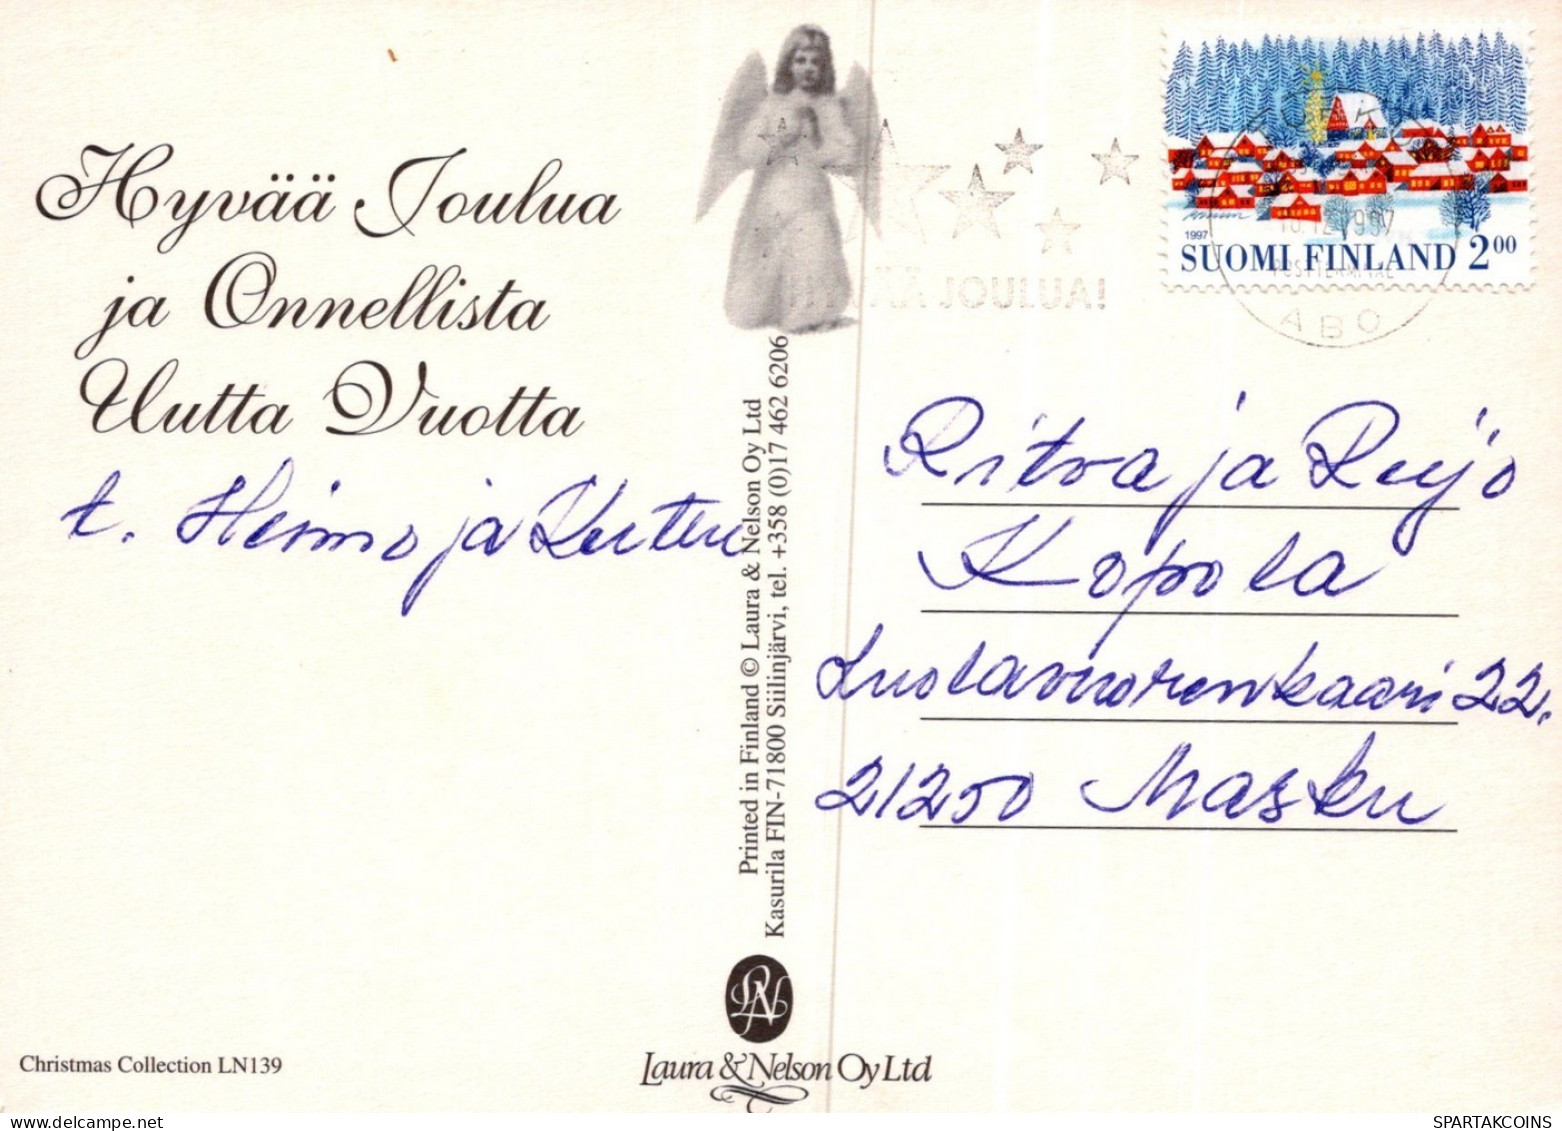 Hyvää Joulua
ja Onnellista
Uutta Vuotta
t. Heimo ja
Christmas Collection LN139
Printed in Finland © Laura & Nelson Oy Ltd
Kasurila FIN-71800 Siilinjärvi, tel. +358 (0)17 462 6206
LN
Laura & Nelson Oy Ltd
JOULUA!
1997
SUOMI FINLAND 2⁰⁰
12.1997
POSTTERMINAL
ABO
Ritva ja Reijo
Kopola
Luolavuorenkaari 22.
21250 Masku
SPARTAKCOINS